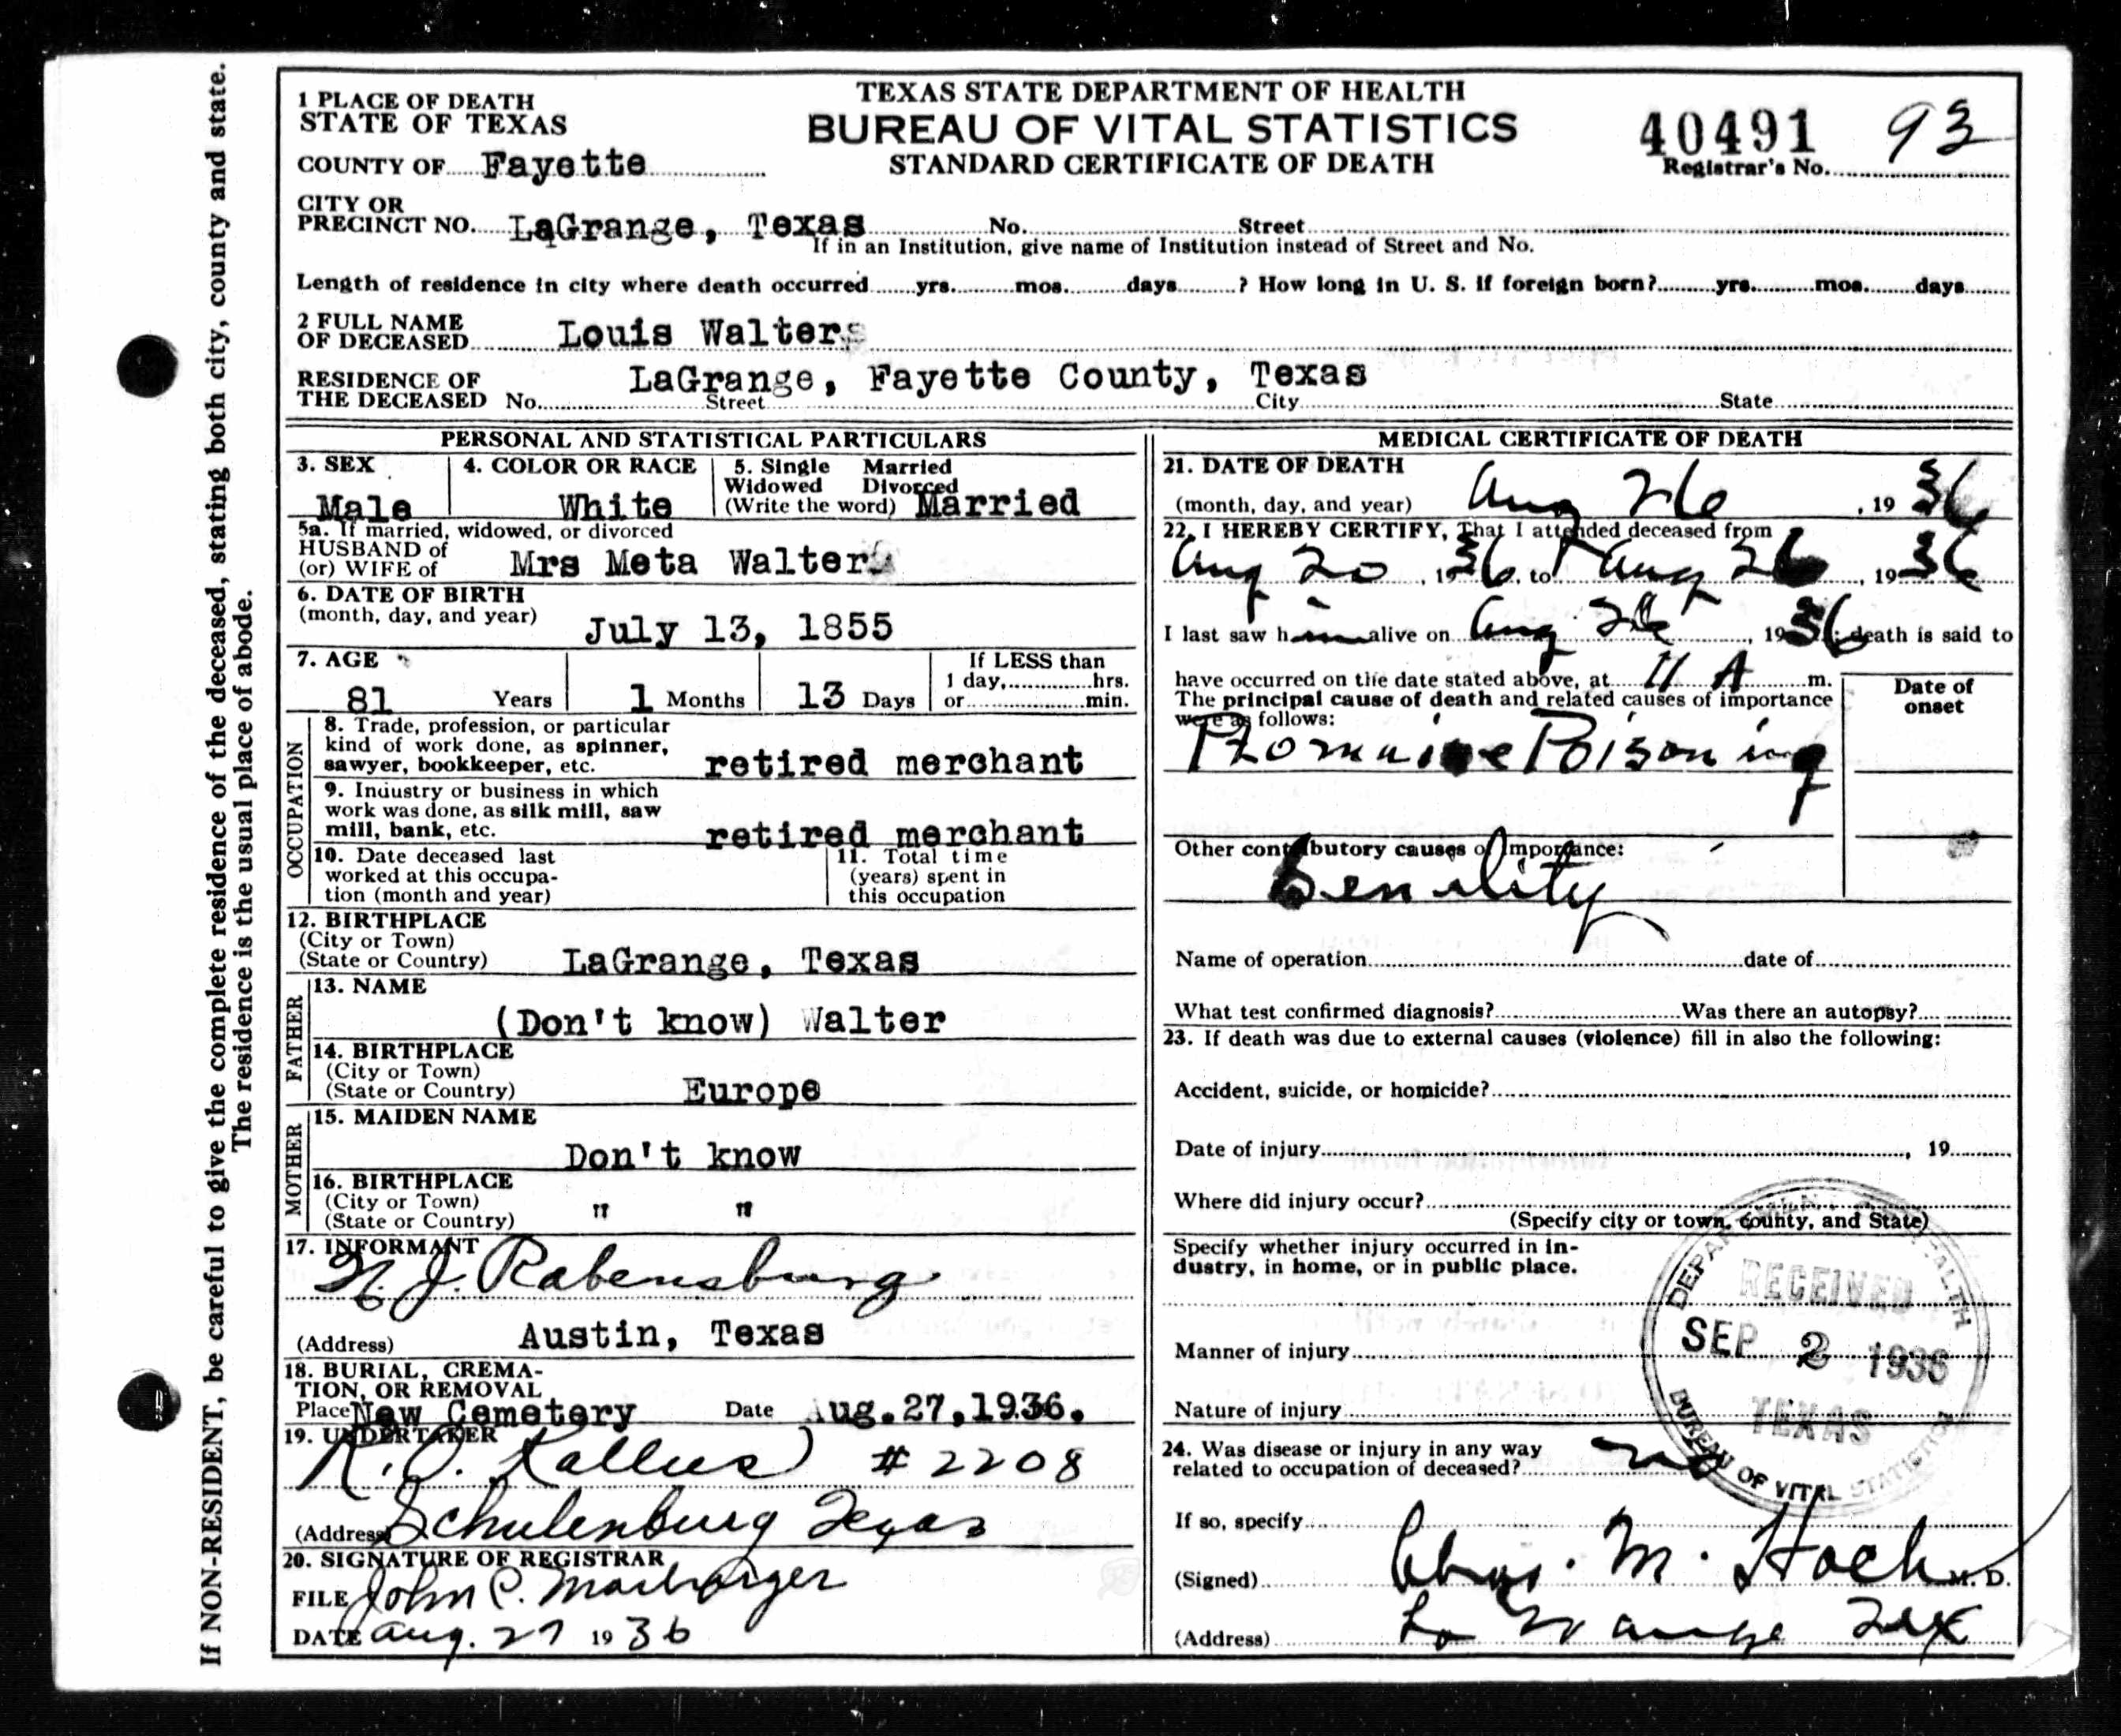 If NON-RESIDENT, be careful to give the complete residence of the deceased, stating both city, county and state.
The residence is the usual place of abode.
TEXAS STATE DEPARTMENT OF HEALTH
BUREAU OF VITAL STATISTICS
STANDARD CERTIFICATE OF DEATH
40491 93
Registrar's No.
1 PLACE OF DEATH
STATE OF TEXAS
COUNTY OF Fayette
CITY OR
PRECINCT NO. LaGrange, Texas No. Street
If in an Institution, give name of Institution instead of Street and No.
Length of residence in city where death occurred yrs. mos. days ? How long in U. S. if foreign born? yrs. mos. days
2 FULL NAME
OF DECEASED Louis Walter
RESIDENCE OF
THE DECEASED No. Street City State
LaGrange, Fayette County, Texas
PERSONAL AND STATISTICAL PARTICULARS
3. SEX
Male
4. COLOR OR RACE
White
5. Single Married
Widowed Divorced
(Write the word) Married
5a. If married, widowed, or divorced
HUSBAND of
(or) WIFE of Mrs Meta Walter
6. DATE OF BIRTH
(month, day, and year) July 13, 1855
7. AGE
81 Years 1 Months 13 Days
If LESS than
1 day, hrs.
or min.
OCCUPATION
8. Trade, profession, or particular
kind of work done, as spinner,
sawyer, bookkeeper, etc. retired merchant
9. Industry or business in which
work was done, as silk mill, saw
mill, bank, etc. retired merchant
10. Date deceased last
worked at this occupa-
tion (month and year)
11. Total time
(years) spent in
this occupation
12. BIRTHPLACE
(City or Town)
(State or Country) LaGrange, Texas
FATHER
13. NAME
(Don't know) Walter
14. BIRTHPLACE
(City or Town)
(State or Country) Europe
MOTHER
15. MAIDEN NAME
Don't know
16. BIRTHPLACE
(City or Town)
(State or Country) " "
17. INFORMANT
J. Rabensburg
(Address) Austin, Texas
18. BURIAL, CREMA-
TION, OR REMOVAL
Place New Cemetery Date Aug.27,1936.
19. UNDERTAKER
R. O. Kallus #2208
(Address) Schulenburg Texas
20. SIGNATURE OF REGISTRAR
FILE John C. Marburger
DATE Aug. 27 1936
MEDICAL CERTIFICATE OF DEATH
21. DATE OF DEATH
(month, day, and year) Aug 26, 1936
22. I HEREBY CERTIFY, That I attended deceased from
Aug 20, 1936, to Aug 26, 1936
I last saw him alive on Aug 26, 1936; death is said to
have occurred on the date stated above, at 11 A m.
The principal cause of death and related causes of importance
were as follows:
Date of
onset
Ptomaine Poisoning
Other contributory causes of importance:
Senility
Name of operation date of
What test confirmed diagnosis? Was there an autopsy?
23. If death was due to external causes (violence) fill in also the following:
Accident, suicide, or homicide?
Date of injury , 19
Where did injury occur?
(Specify city or town, county, and State)
Specify whether injury occurred in in-
dustry, in home, or in public place.
Manner of injury
Nature of injury
DEPARTMENT OF HEALTH
RECEIVED
SEP 2 1936
TEXAS
BUREAU OF VITAL STATISTICS
24. Was disease or injury in any way
related to occupation of deceased? no
If so, specify
(Signed) Chas. M. Hoch M. D.
(Address) La Grange Tex